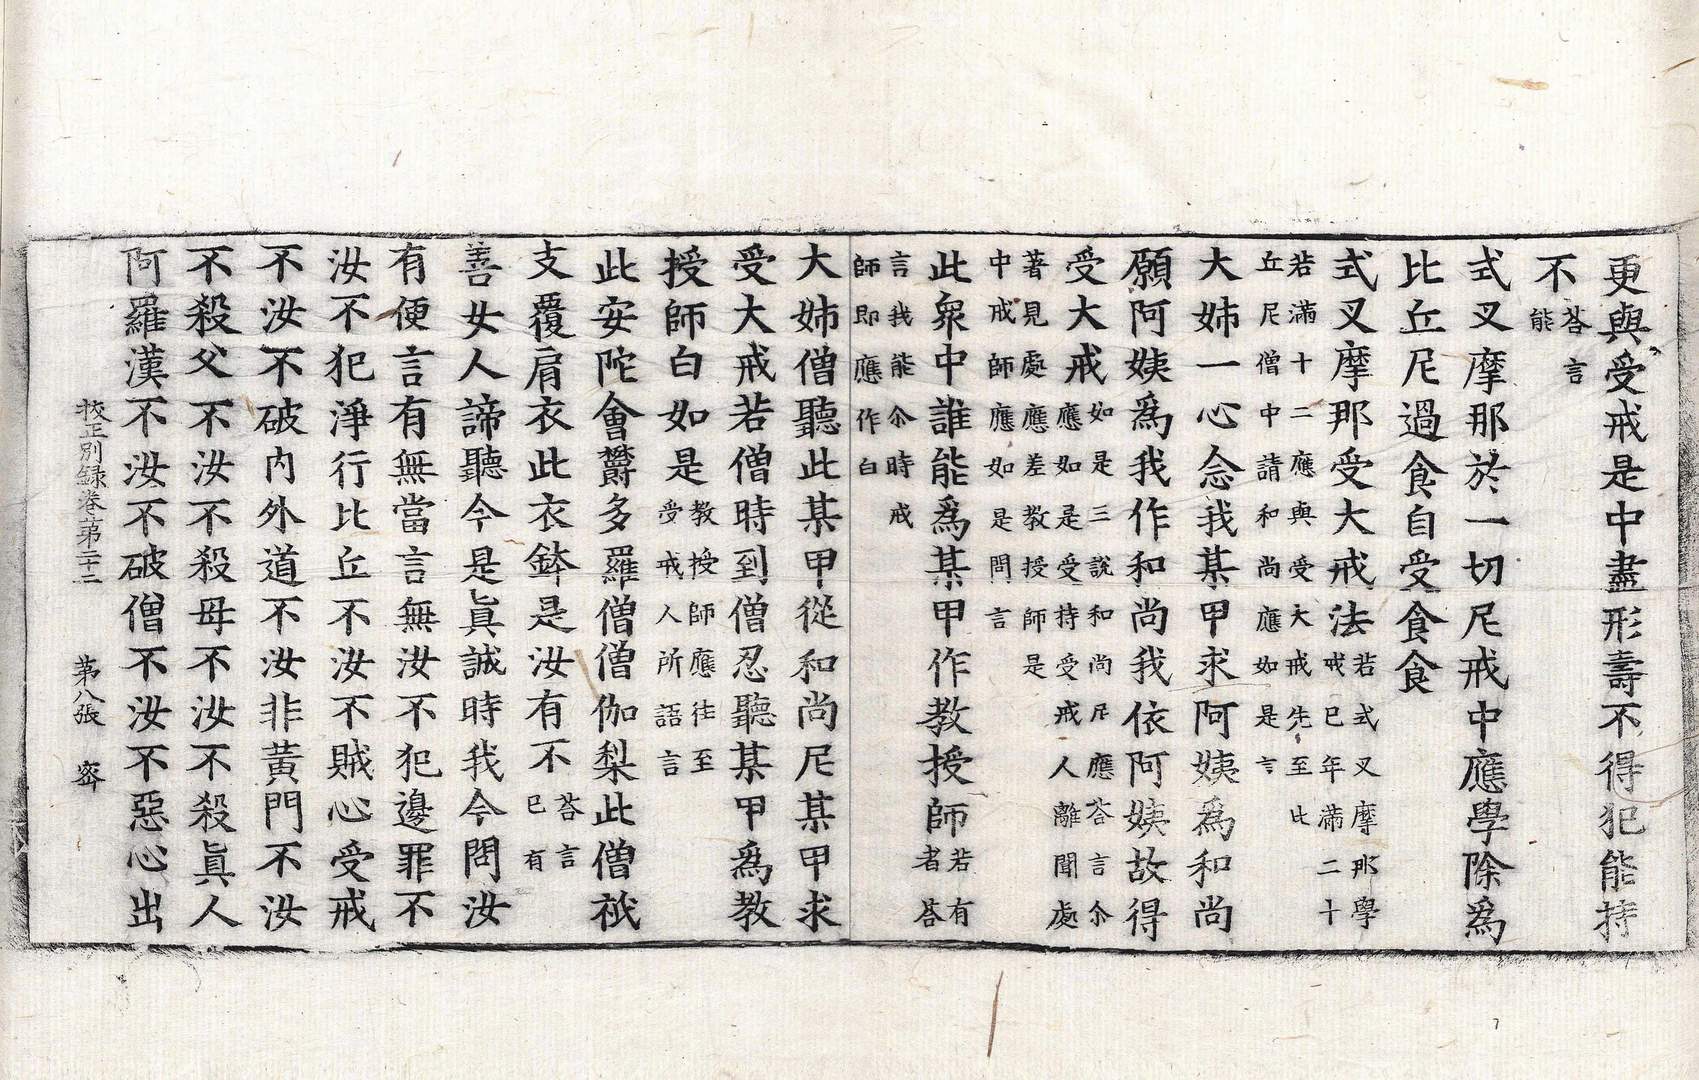 更與受戒是中盡形壽不得犯能持
不荅言能
式叉摩那於一切尼戒中應學除爲
比丘尼過食自受食食
式叉摩那受大戒法若式叉摩那學戒已年滿二十
若滿十二應與受大戒先至比丘尼僧中請和尚應如是言
大姊一心念我某甲求阿姨爲和尚
願阿姨爲我作和尚我依阿姨故得
受大戒如是三說和尚尼應荅言尒應如是受持受戒人離聞處
著見處應差教授師是中戒師應如是問言
此衆中誰能爲某甲作教授師若有者荅
言我能尒時戒師即應作白
大姊僧聽此某甲從和尚尼某甲求
受大戒若僧時到僧忍聽某甲爲教
授師白如是教授師應往至受戒人所語言
此安陀會欝多羅僧僧伽梨此僧祇
支覆肩衣此衣鉢是汝有不荅言已有
善女人諦聽今是眞誠時我今問汝
有便言有無當言無汝不犯邊罪不
汝不犯淨行比丘不汝不賊心受戒
不汝不破内外道不汝非黃門不汝
不殺父不汝不殺母不汝不殺眞人
阿羅漢不汝不破僧不汝不惡心出
挍正別録卷第二十二 第八張 密